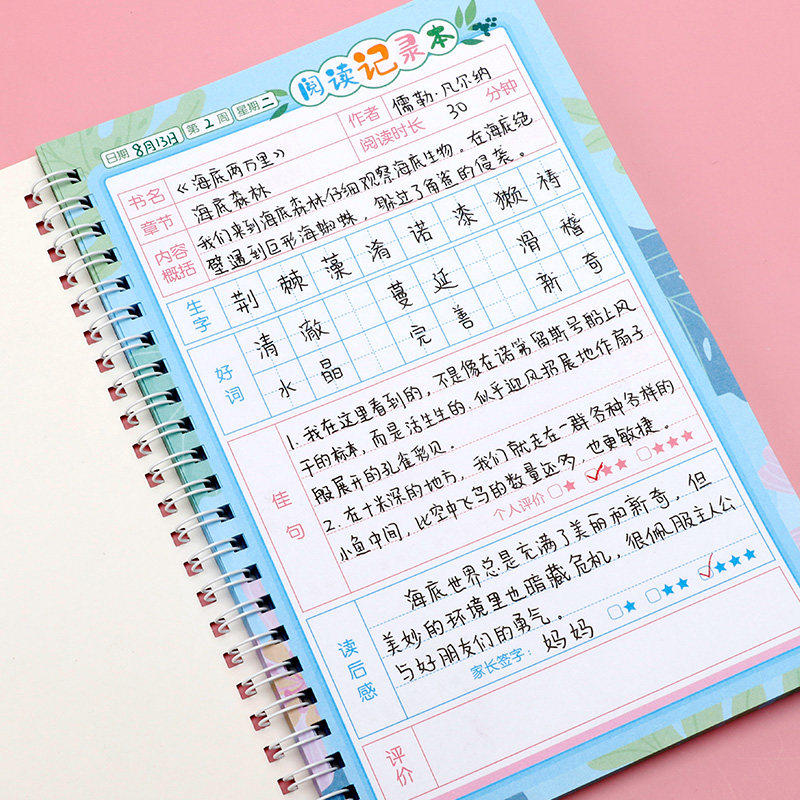 阅读记录本
日期 8月13日 第 2 周 星期 二
书名 《海底两万里》 作者 儒勒·凡尔纳
章节 海底森林 阅读时长 30 分钟
内容概括 我们来到海底森林仔细观察海底生物。在海底绝
壁遇到巨形海蜘蛛,躲过了角鲨的侵袭。
生字 荆 棘 藻 淆 诺 漆 獭 祷
好词 清澈 蔓延 滑稽
水晶 完善 新奇
佳句 1.我在这里看到的,不是像在诺第留斯号船上风
干的标本,而是活生生的,似乎迎风招展地作扇子
般展开的孔雀彩贝。
2.在十米深的地方,我们就走在一群各种各样的
小鱼中间,比空中飞鸟的数量还多,也更敏捷。
个人评价
读后感 海底世界总是充满了美丽和新奇,但
美妙的环境里也暗藏危机,很佩服主人公
与好朋友们的勇气。
家长签字: 妈妈
评价